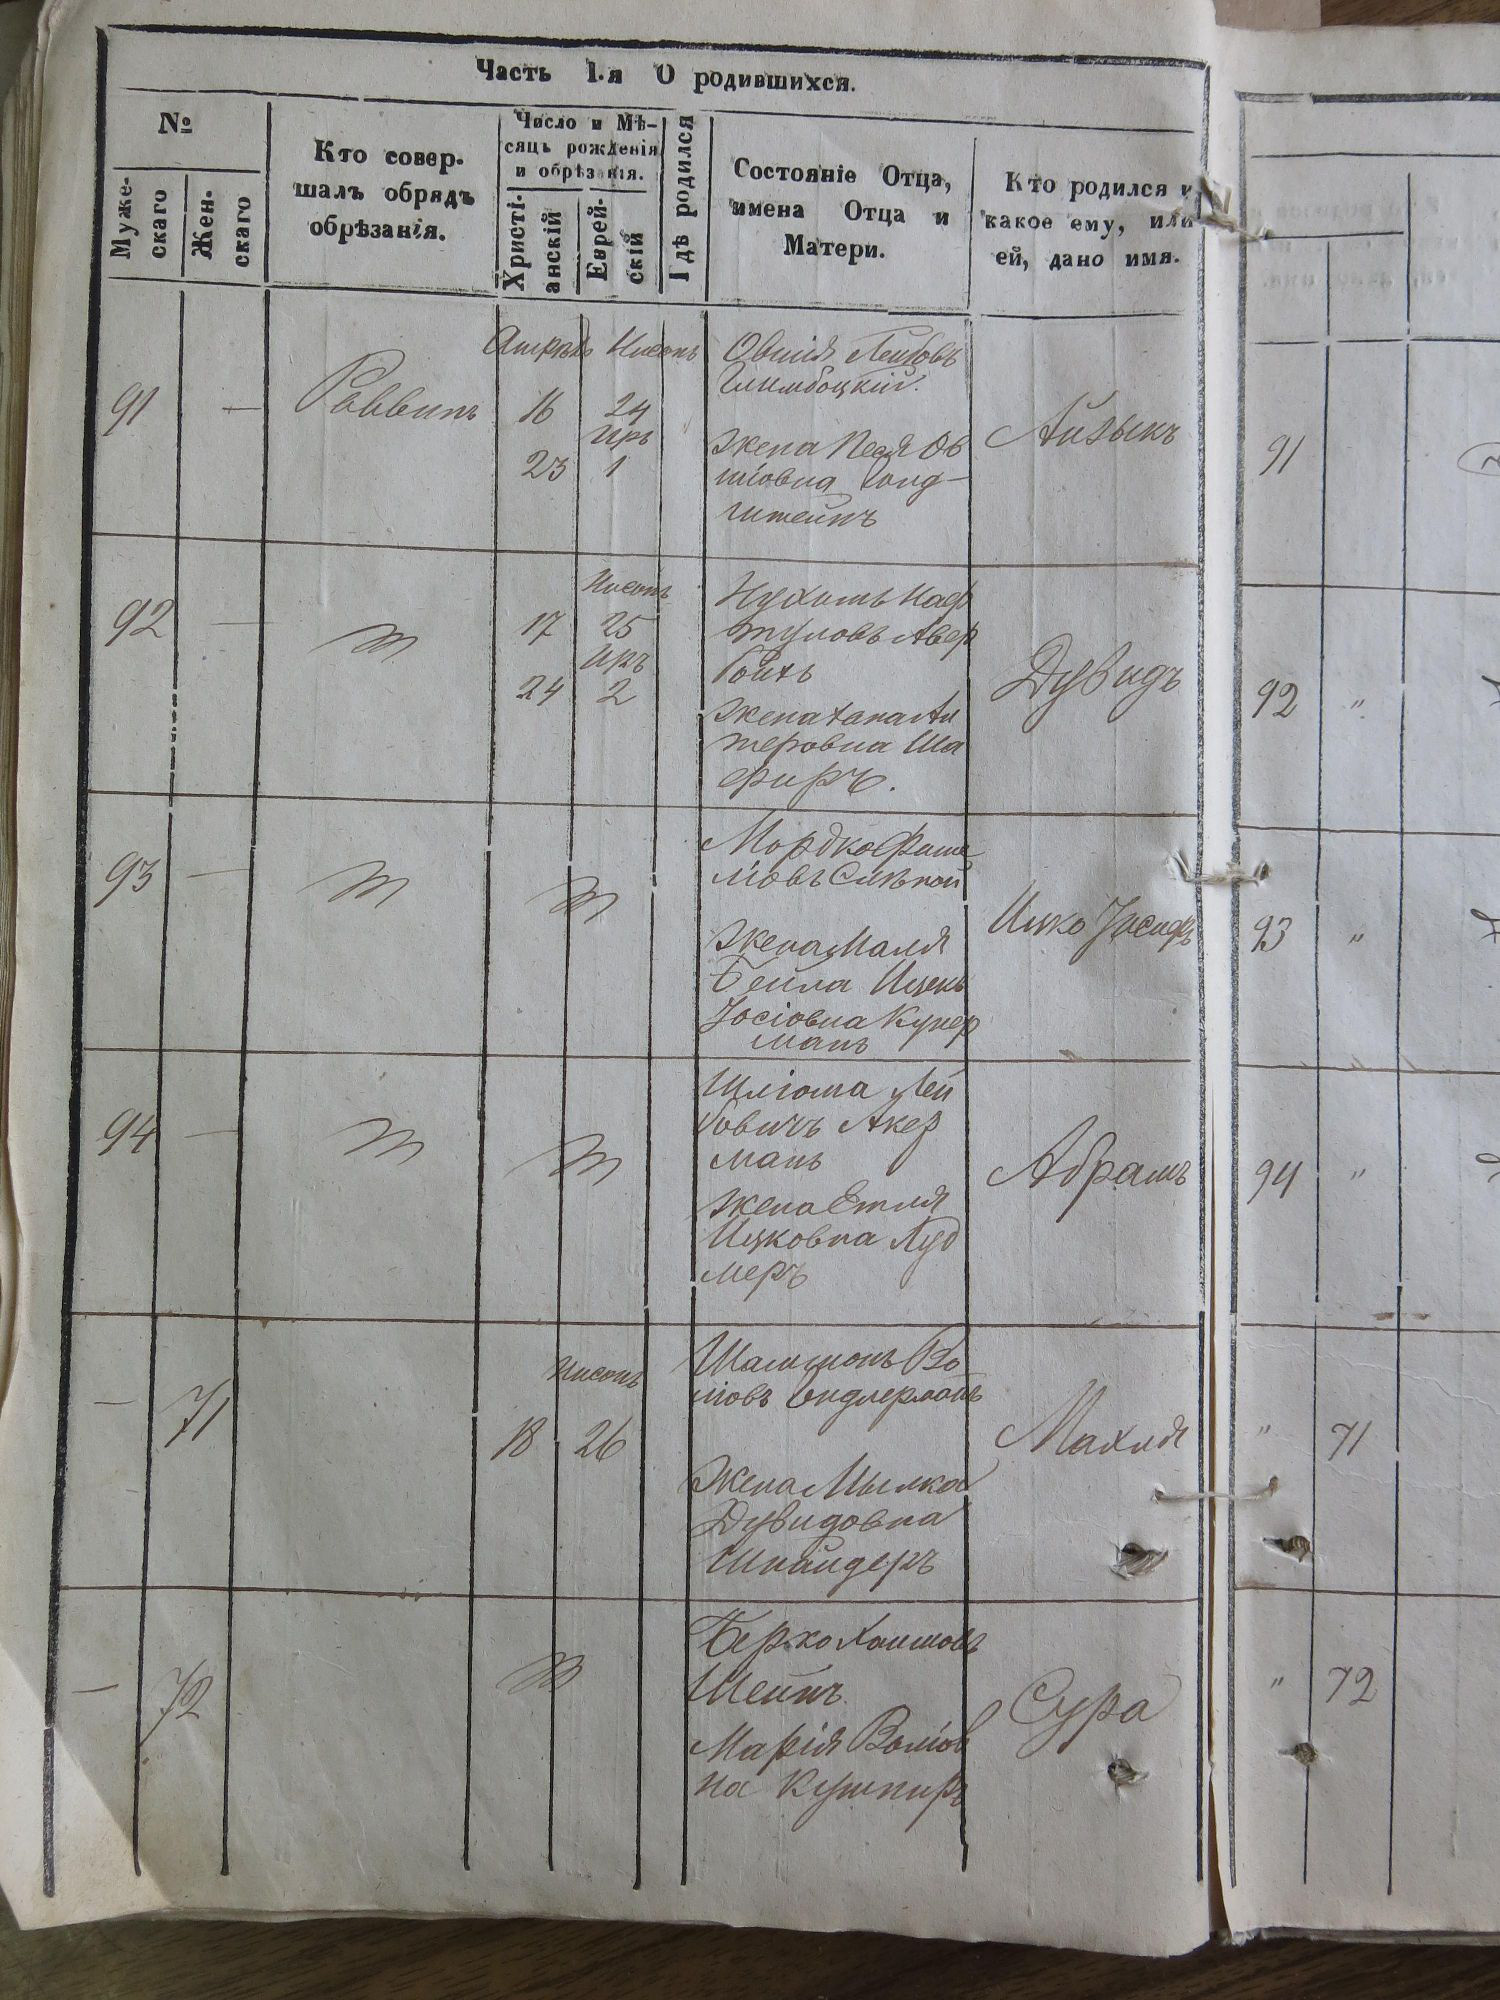 Часть 1.я О родившихся.
№
Муже-
скаго
Жен-
скаго
Кто совер-
шалъ обрядъ
обрѣзанія.
Число и Мѣ-
сяцъ рожденія
и обрѣзанія.
Христі-
анскій
Еврей-
скій
Гдѣ родился
Состояніе Отца,
имена Отца и
Матери.
Кто родился и
какое ему, или
ей, дано имя.
91
—
Раввинъ
Апрѣль Нисонъ
16 24
Иръ
23 1
Овшія Лейбовъ
жена Песя Ов
шіовна Гольд-
штейнъ
Айзыкъ
91
92
—
Нисонъ
17 25
Иръ
24 2
Нухимъ Наф
туловъ Авер
бухъ
жена Хана Ан
шеровна Ша
фиръ.
Дувидъ
92 "
93
—
Мордко
ліовъ Слѣпой
жена Маля
Бейла Ицекъ
Іосіовна Купер
манъ
Ицко Іосифъ
93 "
94
—
Шліома Лей
бовичъ Акер
манъ
жена Етля
Ицковна Луд
меръ
Абрамъ
94 "
—
71
Нисонъ
18 26
Шамшонъ Во
ліовъ Гендлерманъ
жена Мылка
Дувидовна
Шнайдеръ
Махля
" 71
—
72
Берко Хаимовъ
Шейнъ
Марія Воліов
на Кушниръ
Сура
" 72